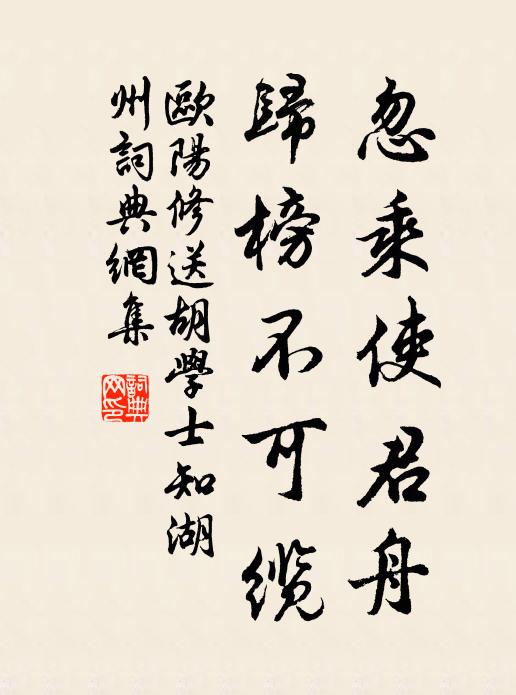 忽乘使君舟
歸榜不可纜
歐陽修送胡學士知湖
州詞典網集
詞典
网印